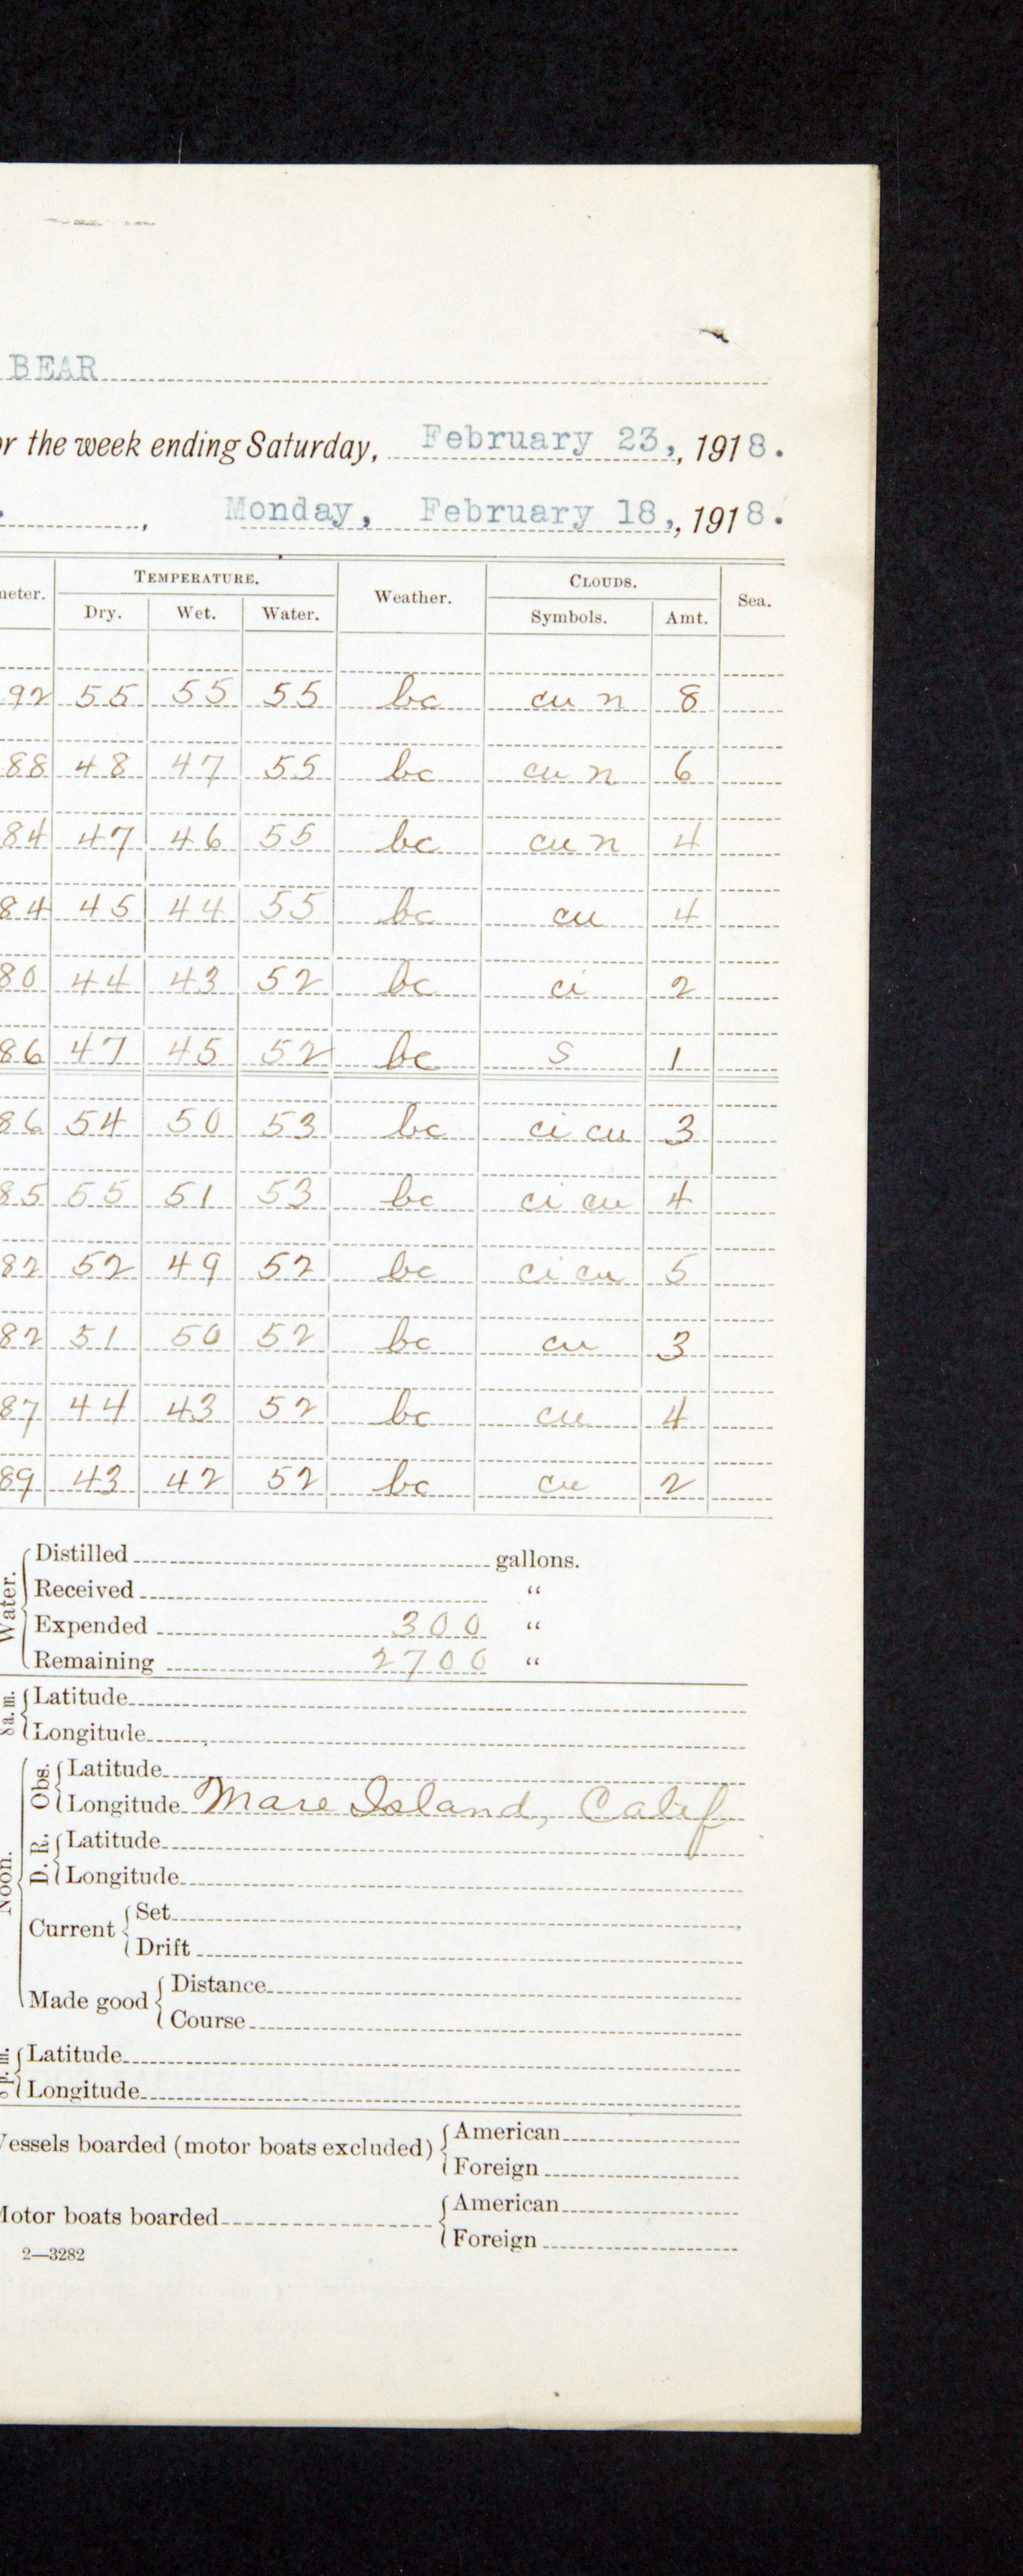 BEAR
the week ending Saturday, February 23, 1918.
Monday, February 18, 1918.
TEMPERATURE. Weather. CLOUDS. Sea.
Dry. Wet. Water. Symbols. Amt.
92 55 55 55 bc cu n 8
88 48 47 55 bc cu n 6
84 47 46 55 bc cu n 4
84 45 44 55 bc cu 4
80 44 43 52 bc ci 2
86 47 45 52 bc S 1
86 54 50 53 bc ci cu 3
85 55 51 53 bc ci cu 4
82 52 49 52 bc ci cu 5
82 51 50 52 bc cu 3
87 44 43 52 bc cu 4
89 43 42 52 bc cu 2
Water.
Distilled gallons.
Received “
Expended 300 “
Remaining 2700 “
8 a.m.
Latitude
Longitude
Noon.
Obs.
Latitude
Longitude Mare Island, Calif
D. R.
Latitude
Longitude
Current Set
Drift
Made good Distance
Course
Latitude
Longitude
Vessels boarded (motor boats excluded) American
Foreign
Motor boats boarded American
Foreign
2—3282